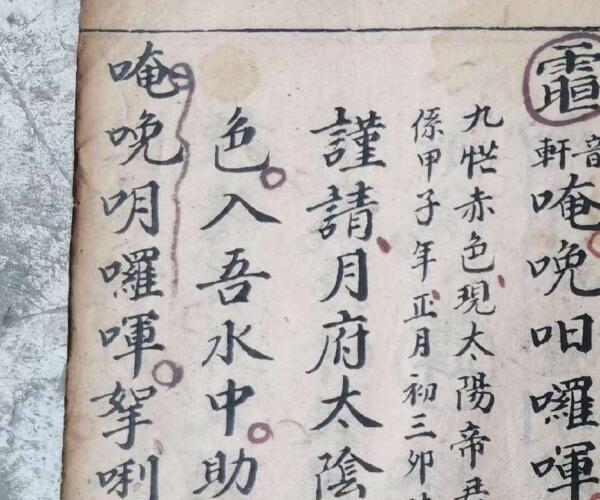 音軒
唵晚呬囉啴
九恾赤色現太陽帝君
係甲子年正月初三卯
謹請月府太陰
色入吾水中助
唵晚明囉啴拏唎